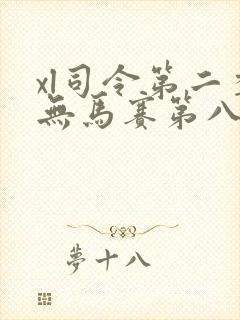 xl司令第二季
無馬賽第八
夢十八